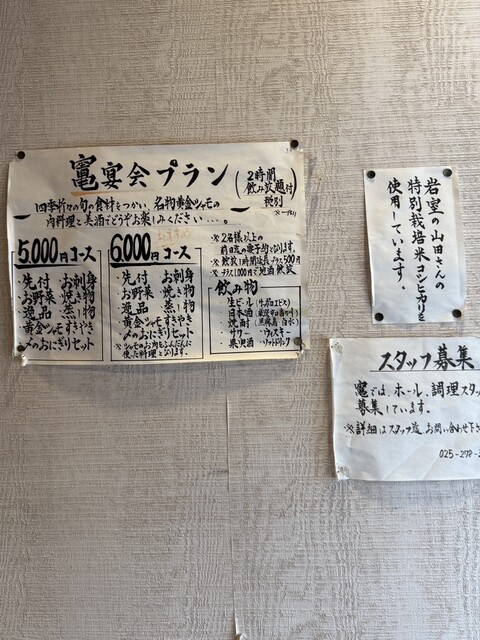 竃宴会プラン
(2時間
飲み放題付
税別)
四季折々の旬の食材をつかい、名物黄金シャモの
肉料理と美酒でどうぞお楽しみください…。
5,000円コース
先付 お刺身
お野菜 焼き物
逸品 蒸し物
黄金シャモすきやき
〆のおにぎりセット
6,000円コース
先付 お刺身
お野菜 焼き物
逸品 蒸し物
黄金シャモすきやき
〆のおにぎりセット
※シャモのお肉をふんだんに
使った料理となります。
※2名様以上の
前日迄の要予約となります。
※飲放1時間延長プラス500円
※プラス1,000円で地酒飲放
飲み物
生ビール
日本酒
焼酎
サワー ・ウィスキー
果実酒 ・ソフトドリンク
岩室の山田さんの
特別栽培米コシヒカリを
使用しています。
スタッフ募集
竃では、ホール、調理スタッ
募集しています。
※詳細はスタッフ迄、お問い合わせ下さ
025-278-